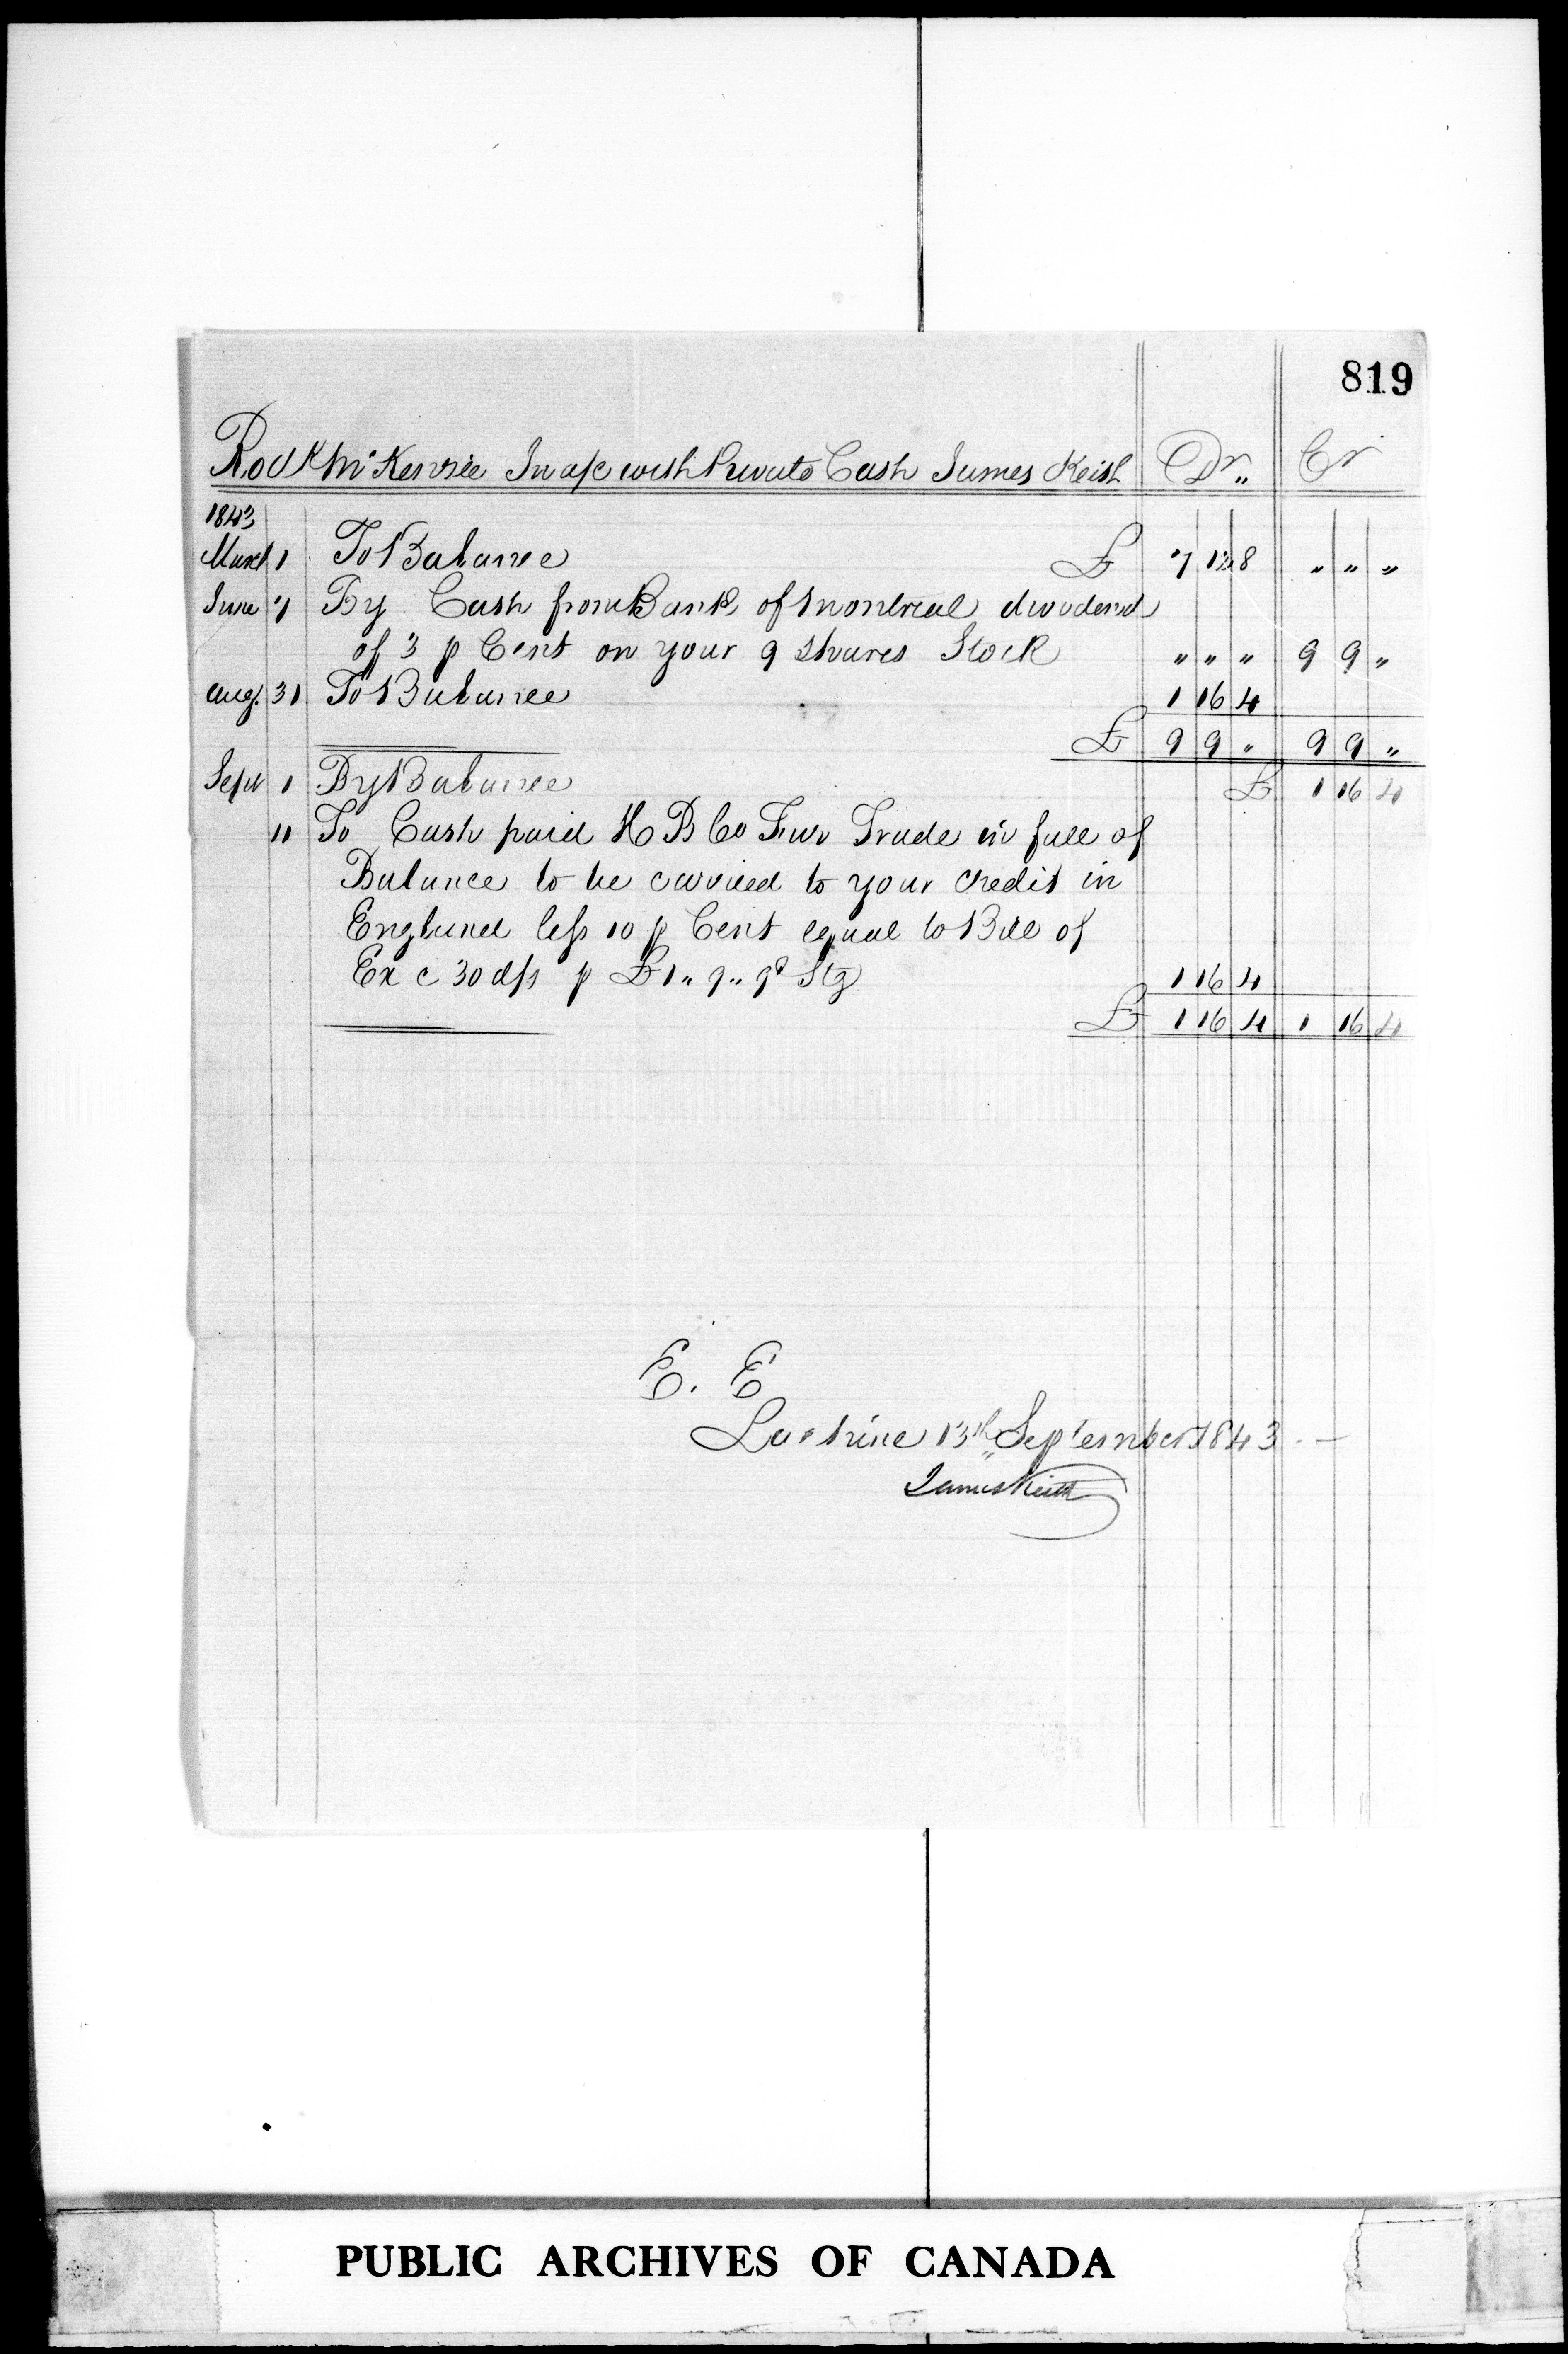 819
Rodk McKenzie In a/c with Private Cash James Keith Dr,, Cr
1843
March 1 To Balance £ 7 12 8 " " "
June 7 By Cash from Bank of Montreal dividend
of 3 p Cent on your 9 shares Stock " " " 9 9 "
Aug. 31 To Balance 1 16 4
£ 9 9 " 9 9 "
Sept 1 By Balance £ 1 16 4
11 To Cash paid H B Co Fur Trade in full of
Balance to be carried to your credit in
England less 10 p Cent equal to Bill of
Ex c 30 d/s p £1,, 9,, 9d Stg 1 16 4
£ 1 16 4 1 16 4
E. E
Lachine 13th September 1843
James Keith
PUBLIC ARCHIVES OF CANADA